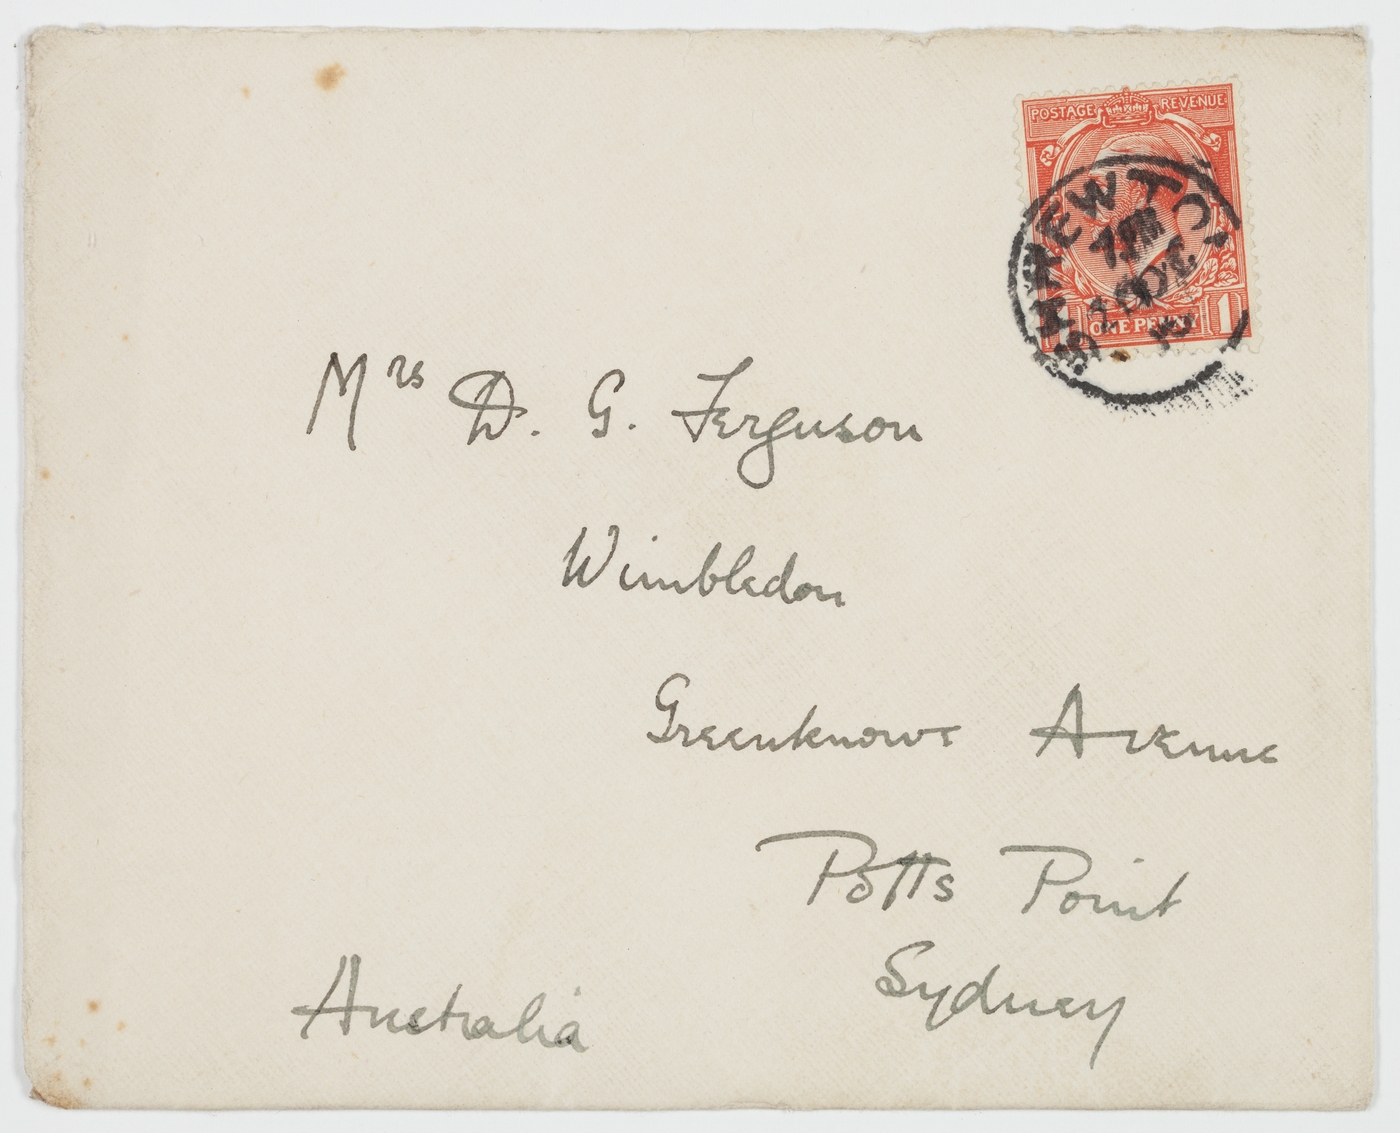 POSTAGE REVENUE
SHREWTO
7 PM
ONE PENNY 1
Mrs D. G. Ferguson
Wimbledon
Greenknowe Avenue
Potts Point
Sydney
Australia